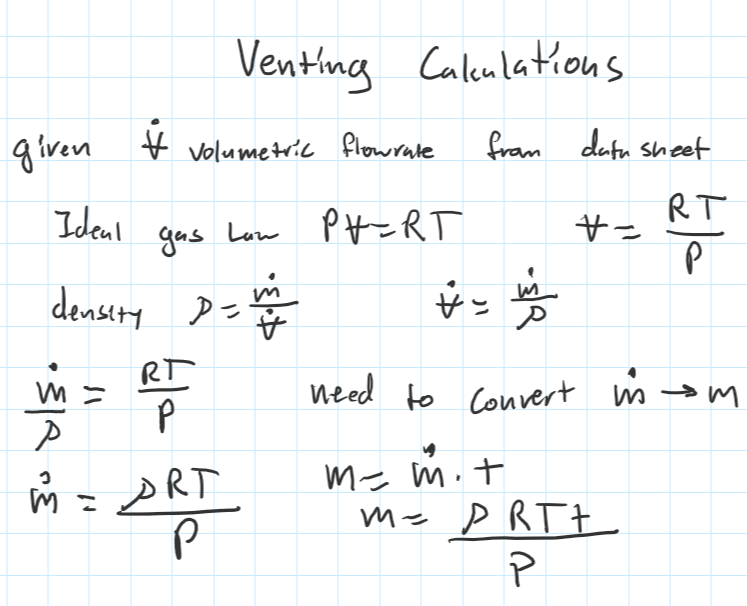 Venting Calculations
given V̶̇ volumetric flowrate from data sheet
Ideal gas Law PV̶=RT V̶ = RT/P
density ρ = ṁ/V̶̇ V̶̇ = ṁ/ρ
ṁ/ρ = RT/P need to convert ṁ → m
ṁ = ρRT/P m = ṁ · t
m = ρRTt/P